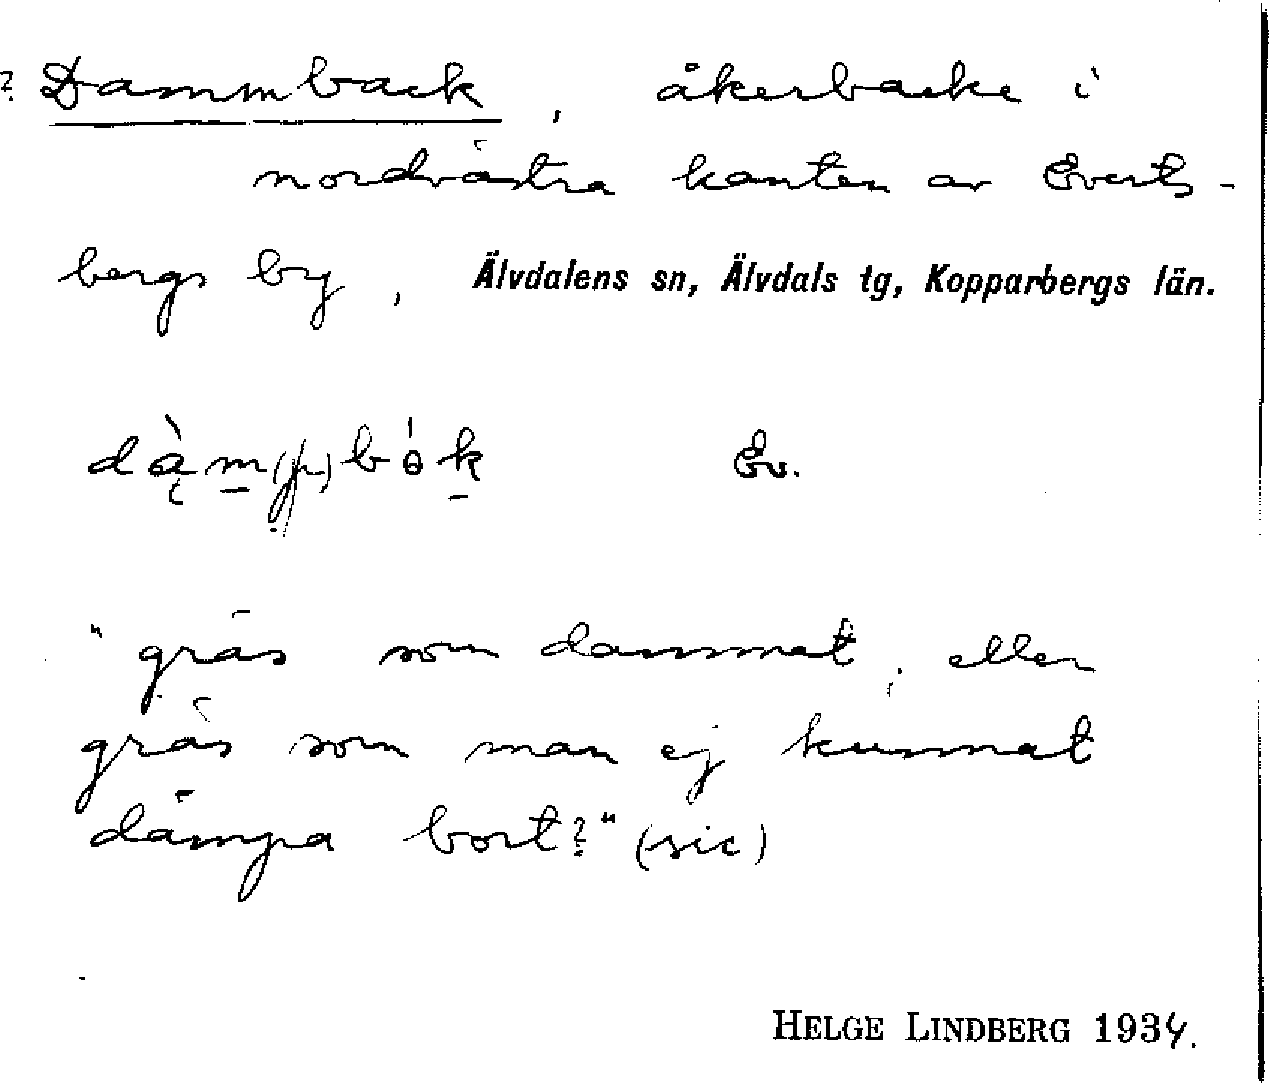 ? Dammback, åkerbacke i
nordvästra kanten av Everts-
bergs by, Älvdalens sn, Älvdals tg, Kopparbergs län.
dą̀m̠(p)bɵ́k̠ Ev.
"gräs som dammat, eller
gräs som man ej kunnat
dämpa bort?" (sic)
HELGE LINDBERG 1934.